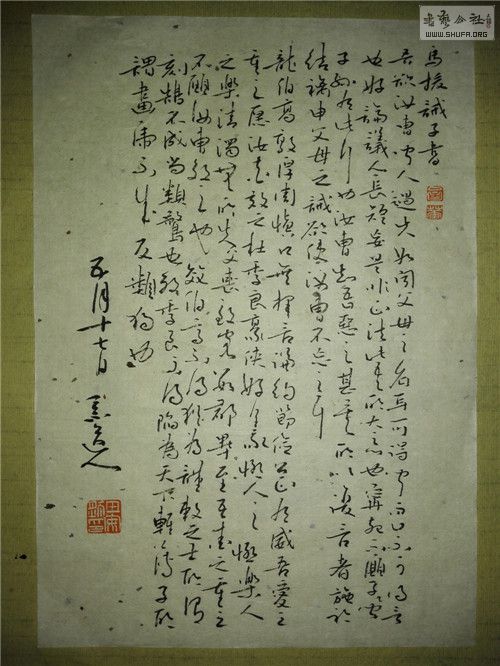 書藝公社
WWW.SHUFA.ORG
馬援誡子書
吾欲汝曹聞人過失如聞父母之名耳可得聞而口不可得言
也好論議人長短妄是非正法此吾所大惡也寧死不願聞
子孫有此行也汝曹知吾惡之甚矣所以復言者施衿
結褵申父母之誡欲使汝曹不忘之耳
龍伯高敦厚周慎口無擇言謙約節儉公有威吾愛之
重之願汝曹效之杜季良豪俠好義憂人之憂樂人
之樂清濁無所失父喪致客數郡畢至吾愛之重之
不願汝曹效之也效伯高不得猶為謹敕之士所謂
刻鵠不成尚類鶩也效季良不得陷為天下輕薄子所
謂畫虎不成反類狗也
五月十七日